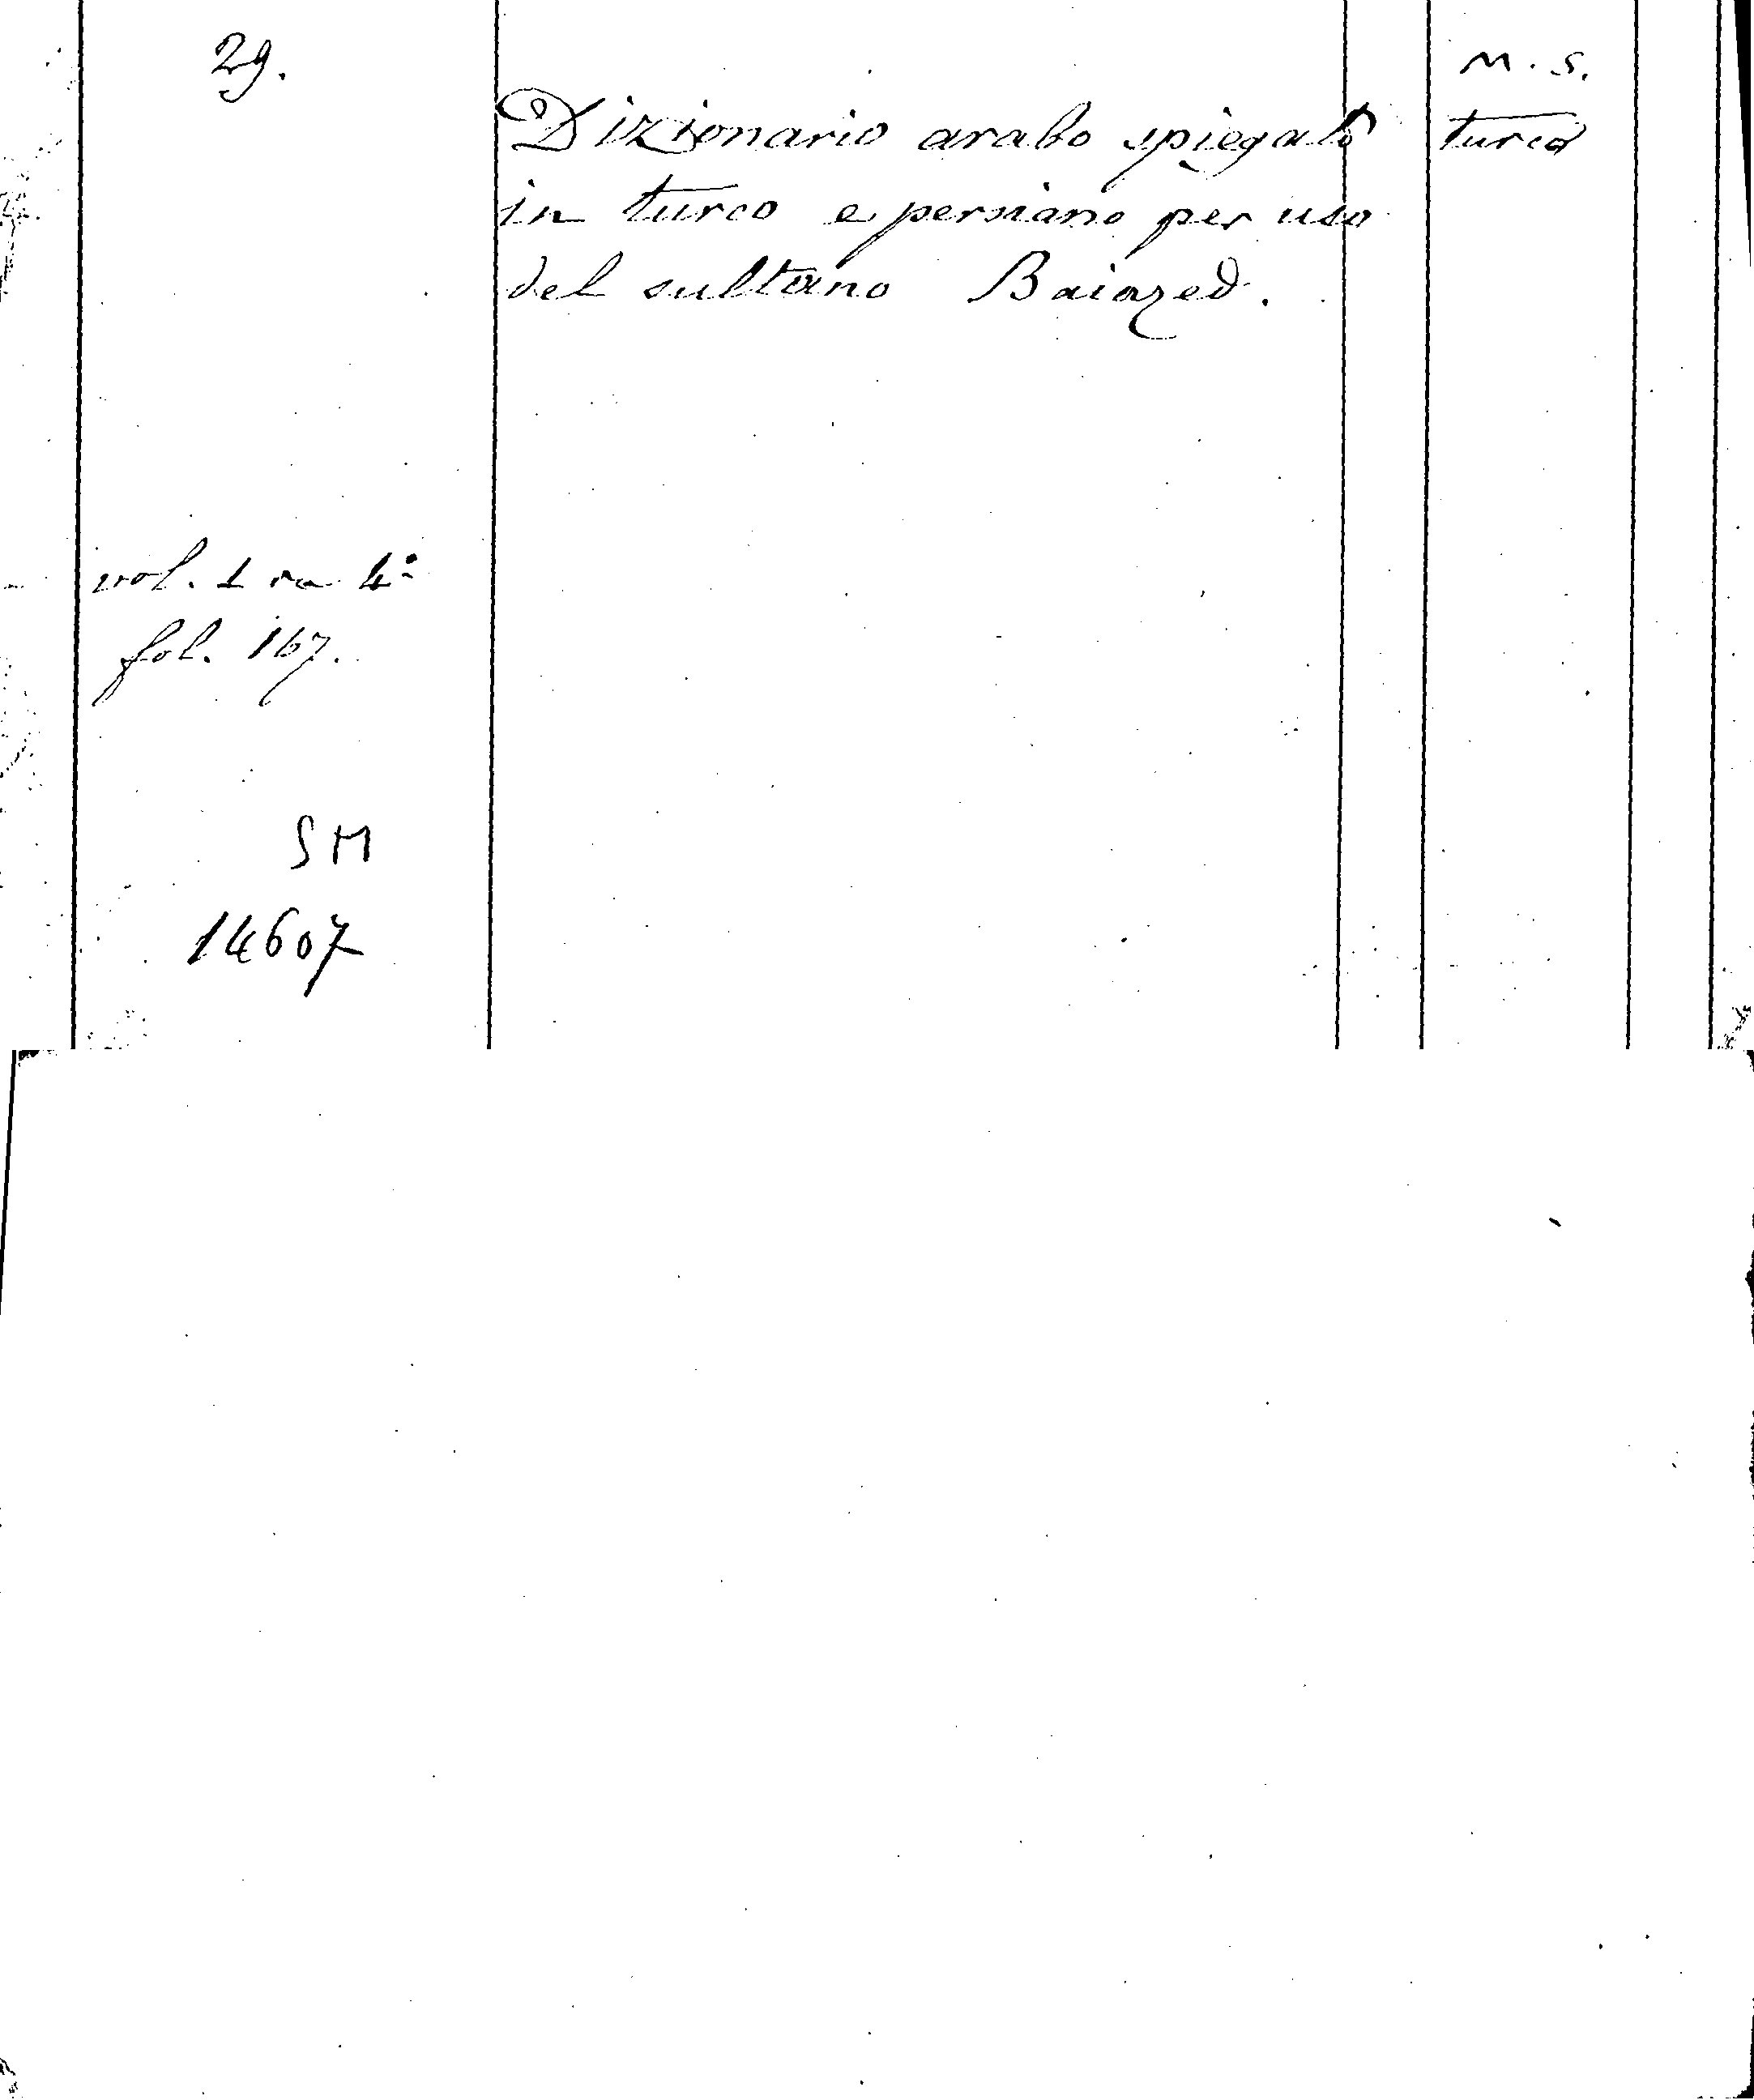 29.
M. S.
Dizionario arabo spiegato
turco
in turco e persiano per uso
del sultano Baiazed.
vol. 1 in 4º
fol. 167.
SM
14607